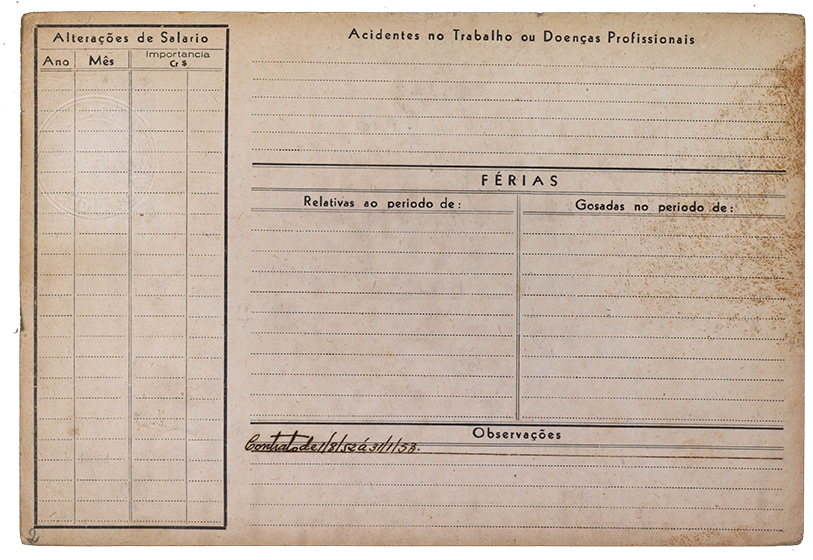 Alterações de Salario
Ano Mês Importancia Cr $
Acidentes no Trabalho ou Doenças Profissionais
FÉRIAS
Relativas ao periodo de:
Gosadas no periodo de:
Observações
Contrato de 1/8/52 á 31/1/53.
2